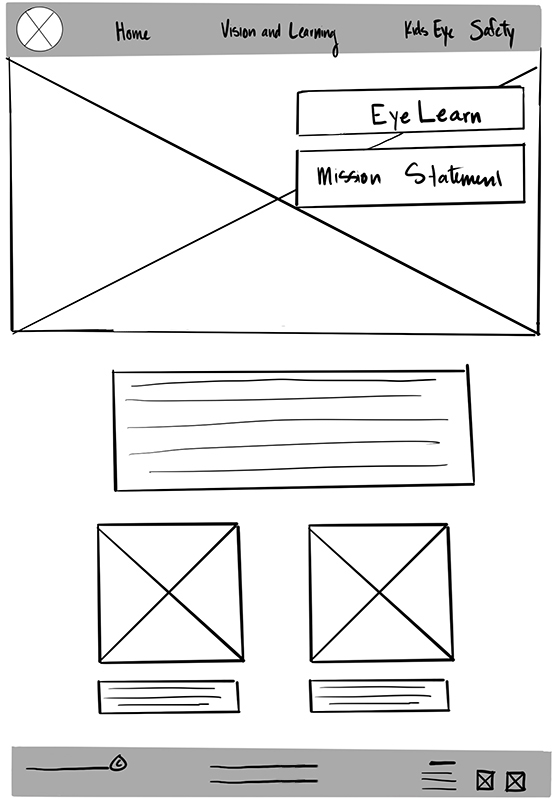 Home Vision and Learning Kids Eye Safety
Eye Learn
Mission Statement
©